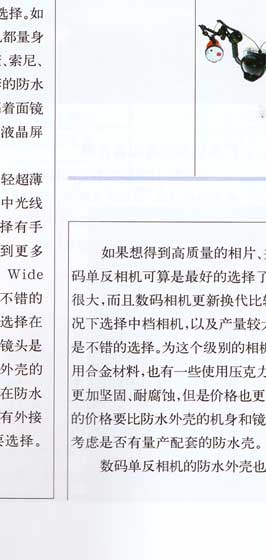 选择。如
几都量身
、索尼、
的防水
着面镜
液晶屏
轻超薄
中光线
择有手
到更多
Wide
不错的
选择在
镜头是
外壳的
在防水
有外接
要选择。
如果想得到高质量的相片、
码单反相机可算是最好的选择了
很大,而且数码相机更新换代比较
况下选择中档相机,以及产量较大
是不错的选择。为这个级别的相机
用合金材料,也有一些使用压克力
更加坚固、耐腐蚀,但是价格也更
的价格要比防水外壳的机身和镜
考虑是否有量产配套的防水壳。
数码单反相机的防水外壳也